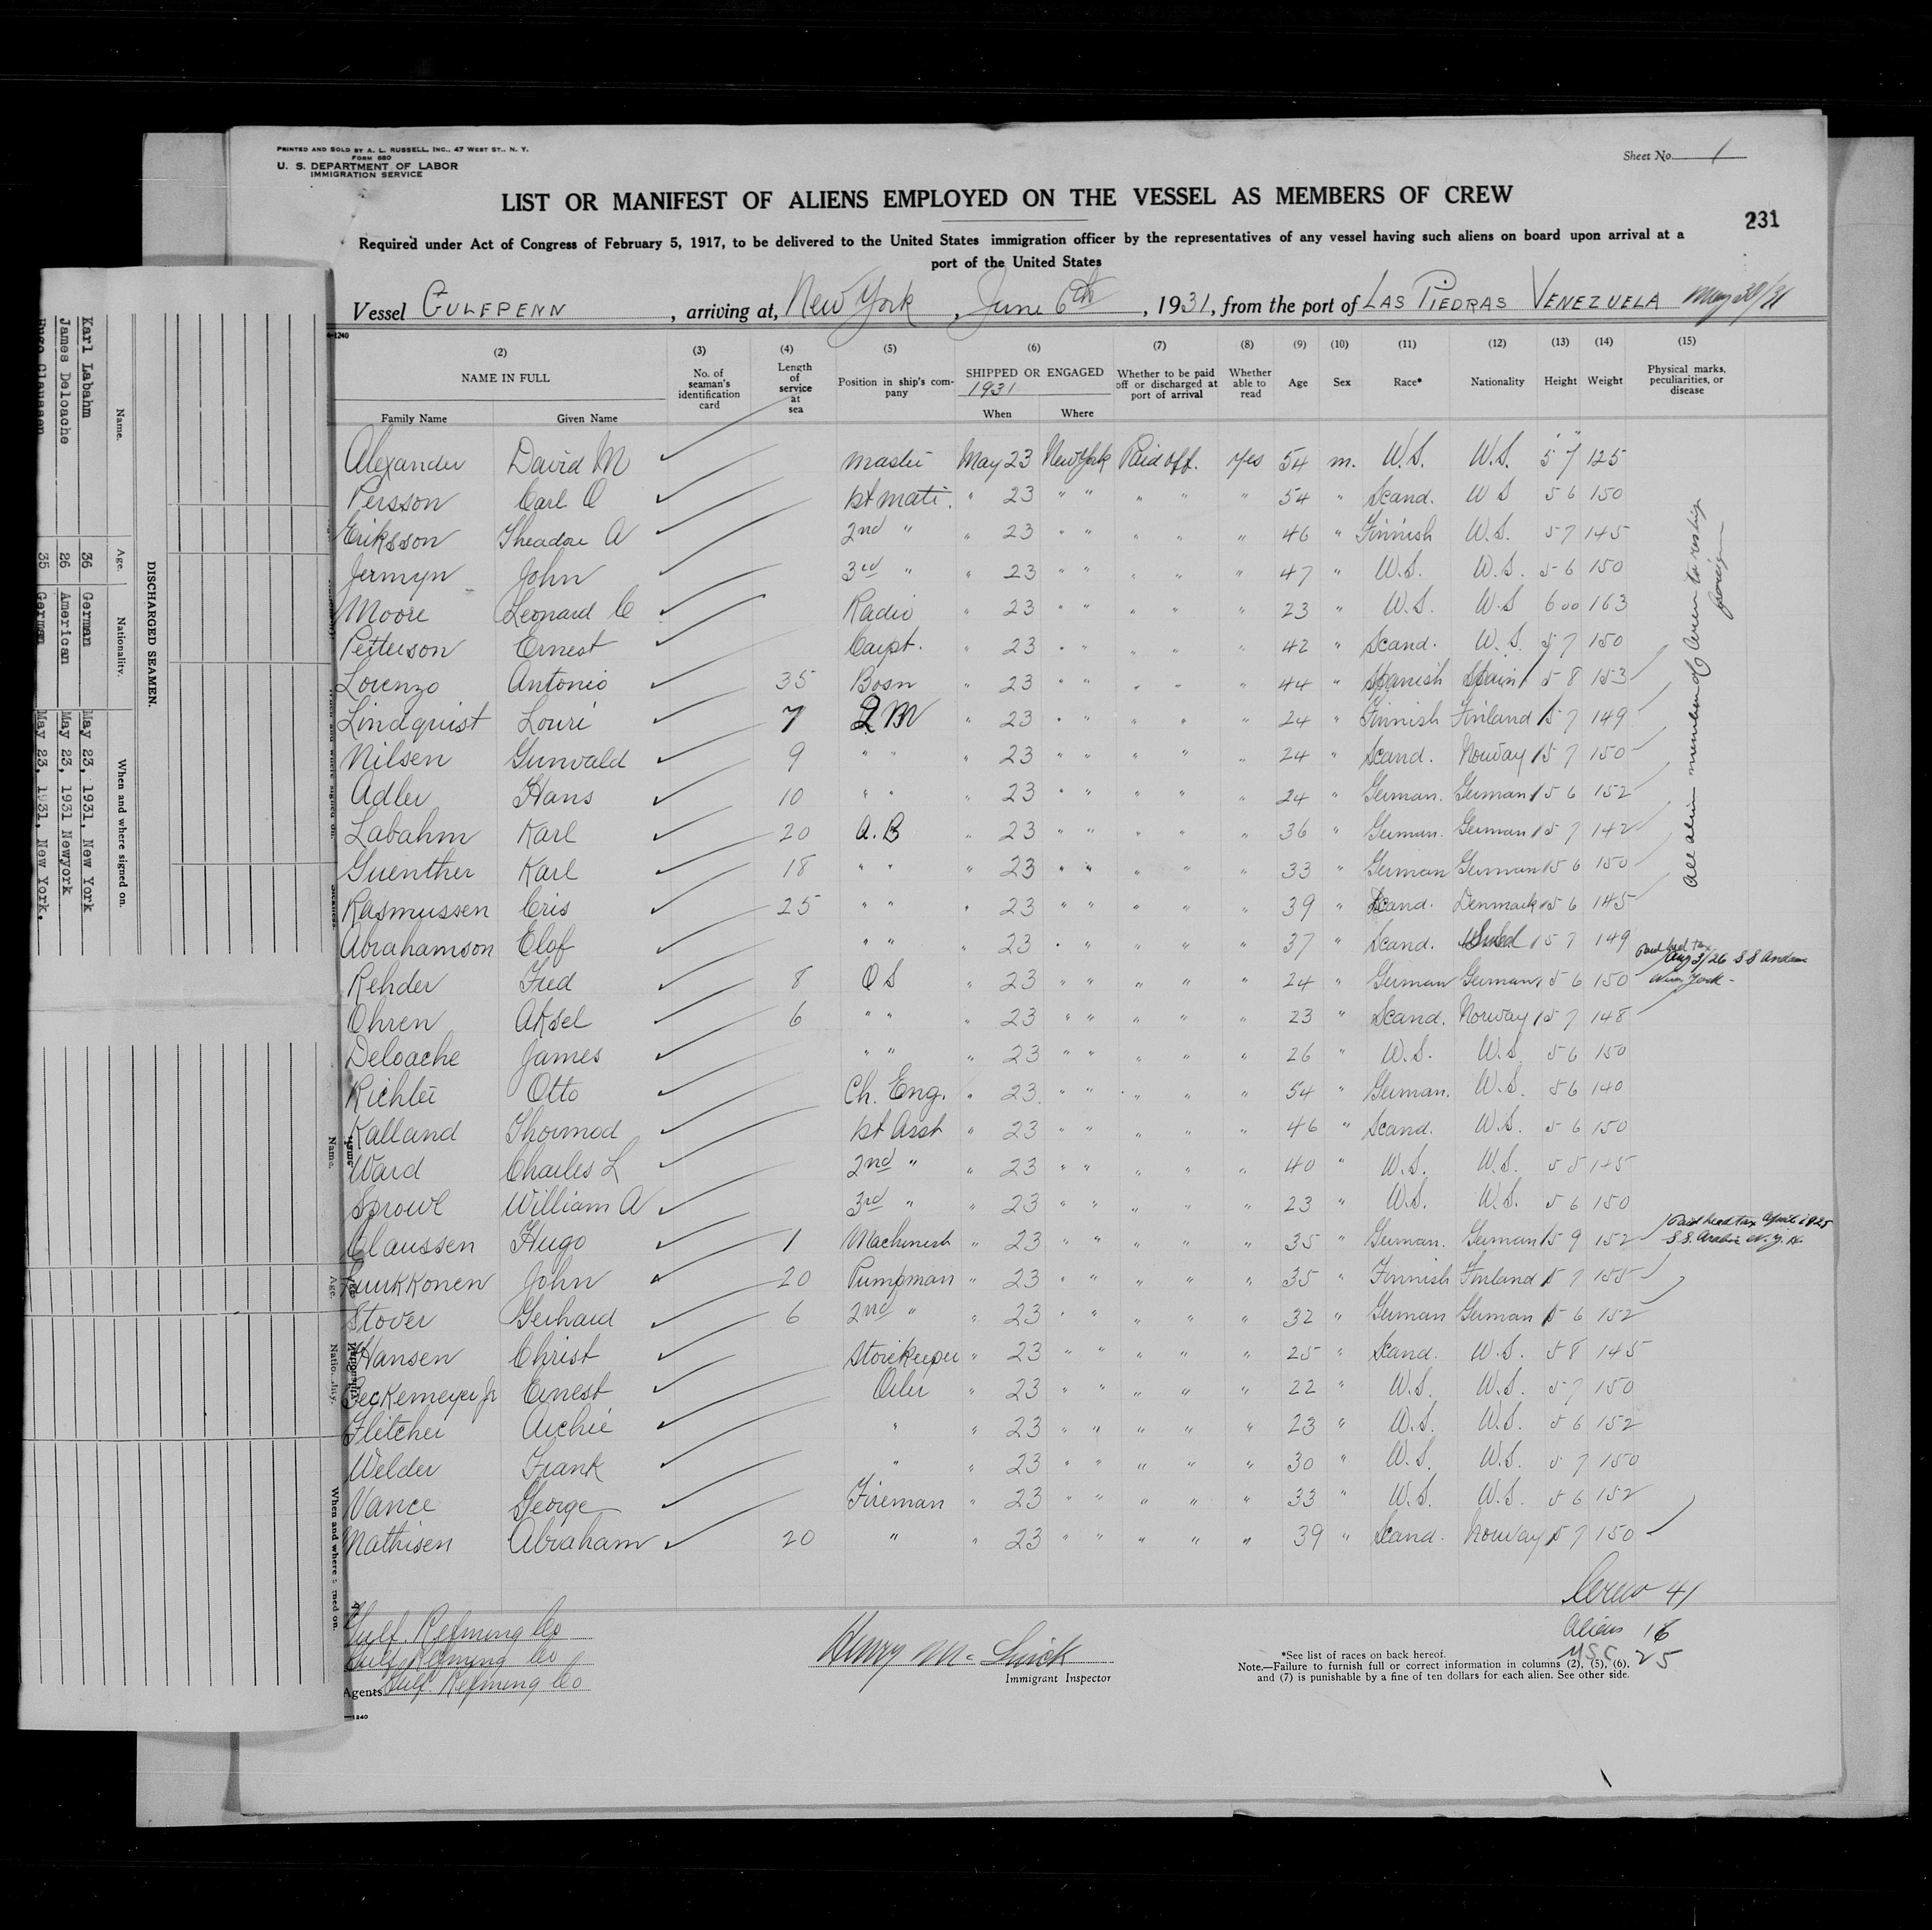 PRINTED AND SOLD BY A. L. RUSSELL, INC., 47 WEST ST., N. Y.
FORM 680
U. S. DEPARTMENT OF LABOR
IMMIGRATION SERVICE
Sheet No. 1
LIST OR MANIFEST OF ALIENS EMPLOYED ON THE VESSEL AS MEMBERS OF CREW
231
Required under Act of Congress of February 5, 1917, to be delivered to the United States immigration officer by the representatives of any vessel having such aliens on board upon arrival at a
port of the United States
Vessel GULFPENN, arriving at, New York, June 6th, 1931, from the port of LAS PIEDRAS VENEZUELA May 30/31
(2) NAME IN FULL Family Name Given Name
(3) No. of seaman's identification card
(4) Length of service at sea
(5) Position in ship's company
(6) SHIPPED OR ENGAGED 1931 When Where
(7) Whether to be paid off or discharged at port of arrival
(8) Whether able to read
(9) Age
(10) Sex
(11) Race*
(12) Nationality
(13) Height
(14) Weight
(15) Physical marks, peculiarities, or disease
Alexander David M Master May 23 New York Paid off. yes 54 m. U.S. U.S. 5 7 125
Persson Carl O 1st mate. " 23 " " " " " 54 " Scand. U S 5 6 150
Eriksson Theadore A 2nd " " 23 " " " " " 46 " Finnish U.S. 5 7 145
Jermyn John 3rd " " 23 " " " " " 47 " U.S. U.S. 5 6 150
Moore Leonard C Radio " 23 " " " " " 23 " U.S. U.S 6 00 163
Petterson Ernest Carpt. " 23 " " " " " 42 " Scand. U.S. 5 7 150
Lorenzo Antonio 35 Bosn " 23 " " " " " 44 " Spanish Spain 5 8 153
Lindquist Louri 7 Q M " 23 " " " " " 24 " Finnish Finland 5 7 149
Nilsen Gunvald 9 " " " 23 " " " " " 24 " Scand. Norway 5 7 150
Adler Hans 10 " " " 23 " " " " " 24 " German. German 5 6 152
Labahm Karl 20 A.B " 23 " " " " " 36 " German. German 5 7 142
Guenther Karl 18 " " " 23 " " " " " 33 " German German 5 6 150
Rasmussen Cris 25 " " " 23 " " " " " 39 " Scand. Denmark 5 6 145
Abrahamson Elof " " " 23 " " " " " 37 " Scand. 5 7 149
Rehder Fred 8 O S " 23 " " " " " 24 " German German 5 6 150
Ohren Aksel 6 " " " 23 " " " " " 23 " Scand. Norway 5 7 148
Deloache James " " " 23 " " " " " 26 " U.S. U.S. 5 6 150
Richter Otto Ch. Eng. " 23 " " " " " 54 " German. U.S. 5 6 140
Kalland Thormod 1st Asst " 23 " " " " " 46 " Scand. U.S. 5 6 150
Ward Charles L 2nd " " 23 " " " " " 40 " U.S. U.S. 5 8 145
Sprowl William A 3rd " " 23 " " " " " 23 " U.S. U.S. 5 6 150
Claussen Hugo 1 Machinist " 23 " " " " " 35 " German. German 5 9 152
John 20 Pumpman " 23 " " " " " 35 " Finnish Finland 5 7 155
Stover Gerhard 6 2nd " " 23 " " " " " 32 " German German 5 6 152
Hansen Christ Storekeeper " 23 " " " " " 25 " Scand. U.S. 5 8 145
Beckemeyer Jr Ernest Oiler " 23 " " " " " 22 " U.S. U.S. 5 7 150
Fletcher Archie " " 23 " " " " " 23 " U.S. U.S. 5 6 152
Welder Frank " " 23 " " " " " 30 " U.S. U.S. 5 7 150
Vance George Fireman " 23 " " " " " 33 " U.S. U.S. 5 6 152
Mathisen Abraham 20 " " 23 " " " " " 39 " Scand. Norway 5 7 150
All alien members of crew to reship
foreign
Paid head tax
Aug 3/26 S S
New York
Paid head tax April 1925
S.S. Arabic N.Y.
Crew 41
Aliens 16
U.S.C. 25
Gulf Refining Co
Gulf Refining Co
Agents Gulf Refining Co
Henry
Immigrant Inspector
*See list of races on back hereof.
Note.—Failure to furnish full or correct information in columns (2), (5), (6),
and (7) is punishable by a fine of ten dollars for each alien. See other side.
—1240
DISCHARGED SEAMEN.
Name. Age. Nationality. When and where signed on.
Karl Labahm 36 German May 23, 1931, New York
James Deloache 26 American May 23, 1931 Newyork
Hugo Claussen 35 German May 23, 1931, New York.